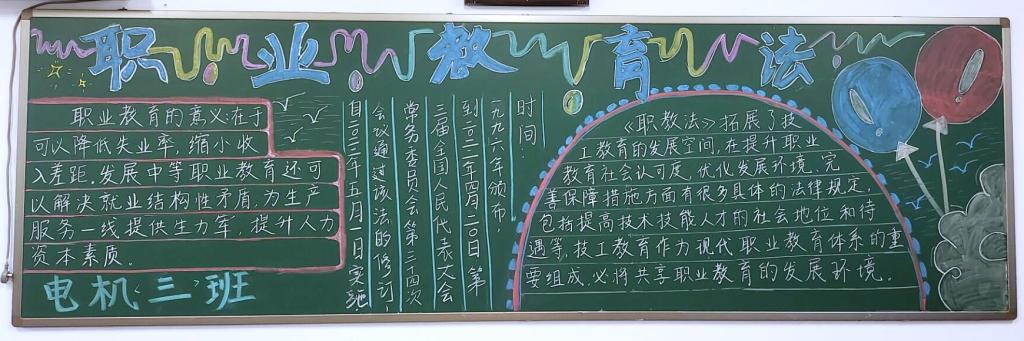 职业教育法
职业教育的意义:在于
可以降低失业率,缩小收
入差距.发展中等职业教育还可
以解决就业结构性矛盾,为生产
服务一线提供生力军,提升人力
资本素质。
电机"三"班
时间:
一九九六年颁布,
到二〇二二年四月二〇日第
三届全国人民代表大会
常务委员会第三十四次
会议通过该法的修订,
自二〇二二年五月1日实施.
《职教法》拓展了技
工教育的发展空间,在提升职业
教育社会认可度,优化发展环境.完
善保障措施方面有很多具体的法律规定,
包括提高技术技能人才的社会地位和待
遇等,技工教育作为现代职业教育体系的重
要组成,必将共享职业教育的发展环境.